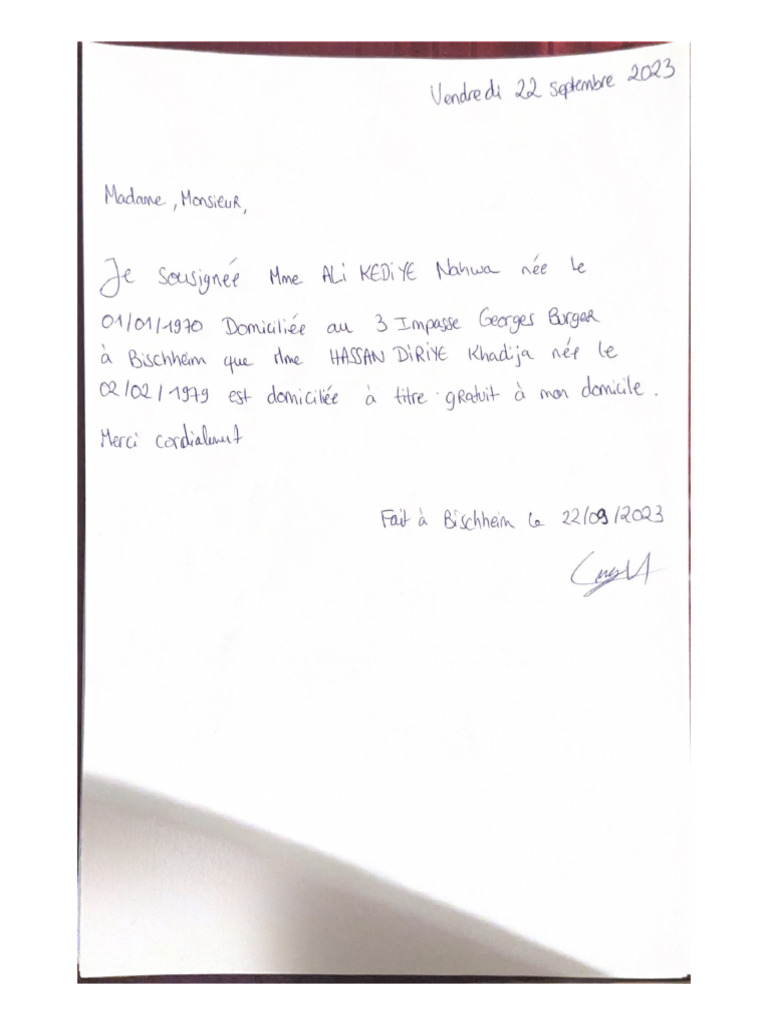 Vendredi 22 septembre 2023
Madame, Monsieur,
Je sousignée Mme ALI KEDIYE Nahwa née le
01/01/1970 Domiciliée au 3 Impasse Georges Burger
à Bischheim que Mme HASSAN DIRIYE Khadija née le
02/02/1979 est domiciliée à titre gratuit à mon domicile.
Merci cordialement
Fait à Bischheim le 22/09/2023